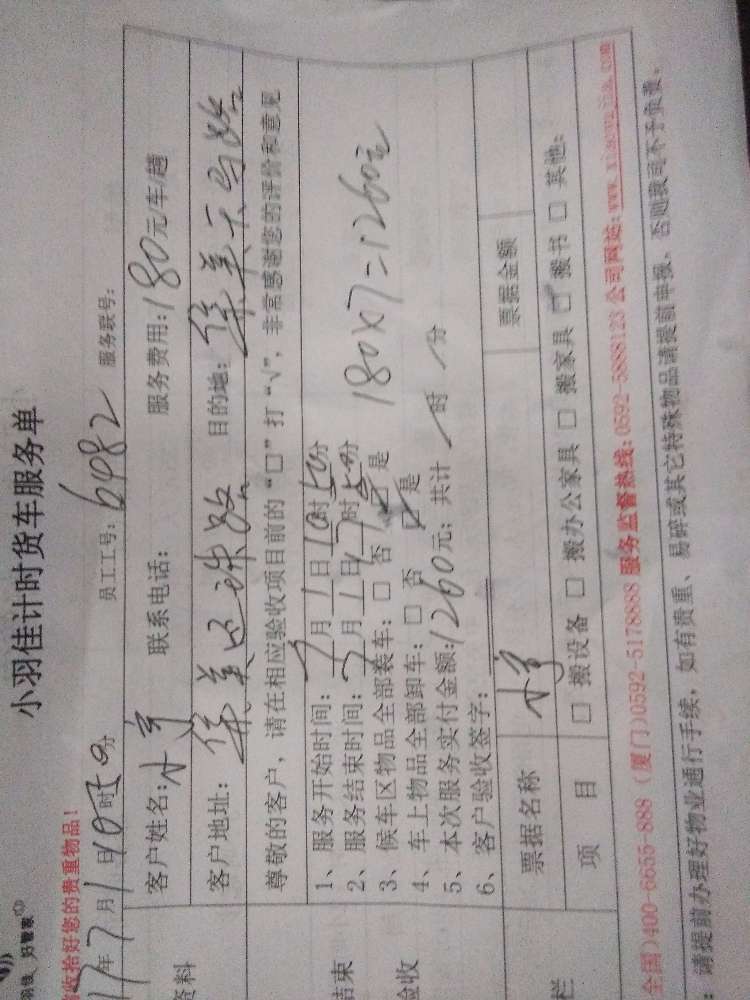 小羽佳计时货车服务单
收拾好您的贵重物品!
17年7月1日10时50分 员工工号: 6982 服务联号:
客户姓名: 联系电话: 服务费用: 180元/车/趟
客户地址: 目的地:
尊敬的客户, 请在相应验收项目前的“□”打“√”, 非常感谢您的评价和意见
1、服务开始时间: 7月1日10时50分
2、服务结束时间: 7月1日17时分
3、候车区物品全部装车: □ 否 □ 是
180×7=1260元
4、车上物品全部卸车: □ 否 □ 是
5、本次服务实付金额: 1260元; 共计 / 时 / 分
6、客户验收签字:
票据名称 票据金额
项 目 □ 搬设备 □ 搬办公家具 □ 搬家具 □ 搬书 □ 其他:
全国)400-6655-888 (厦门)0592-5178888 服务监督热线: 0592-5888123 公司网站: www.xiaoyujia.com
: 请提前办理好物业通行手续, 如有贵重、易碎或其它特殊物品请提前申报, 否则我司不予负责。
资料
结束
验收
栏
好管家